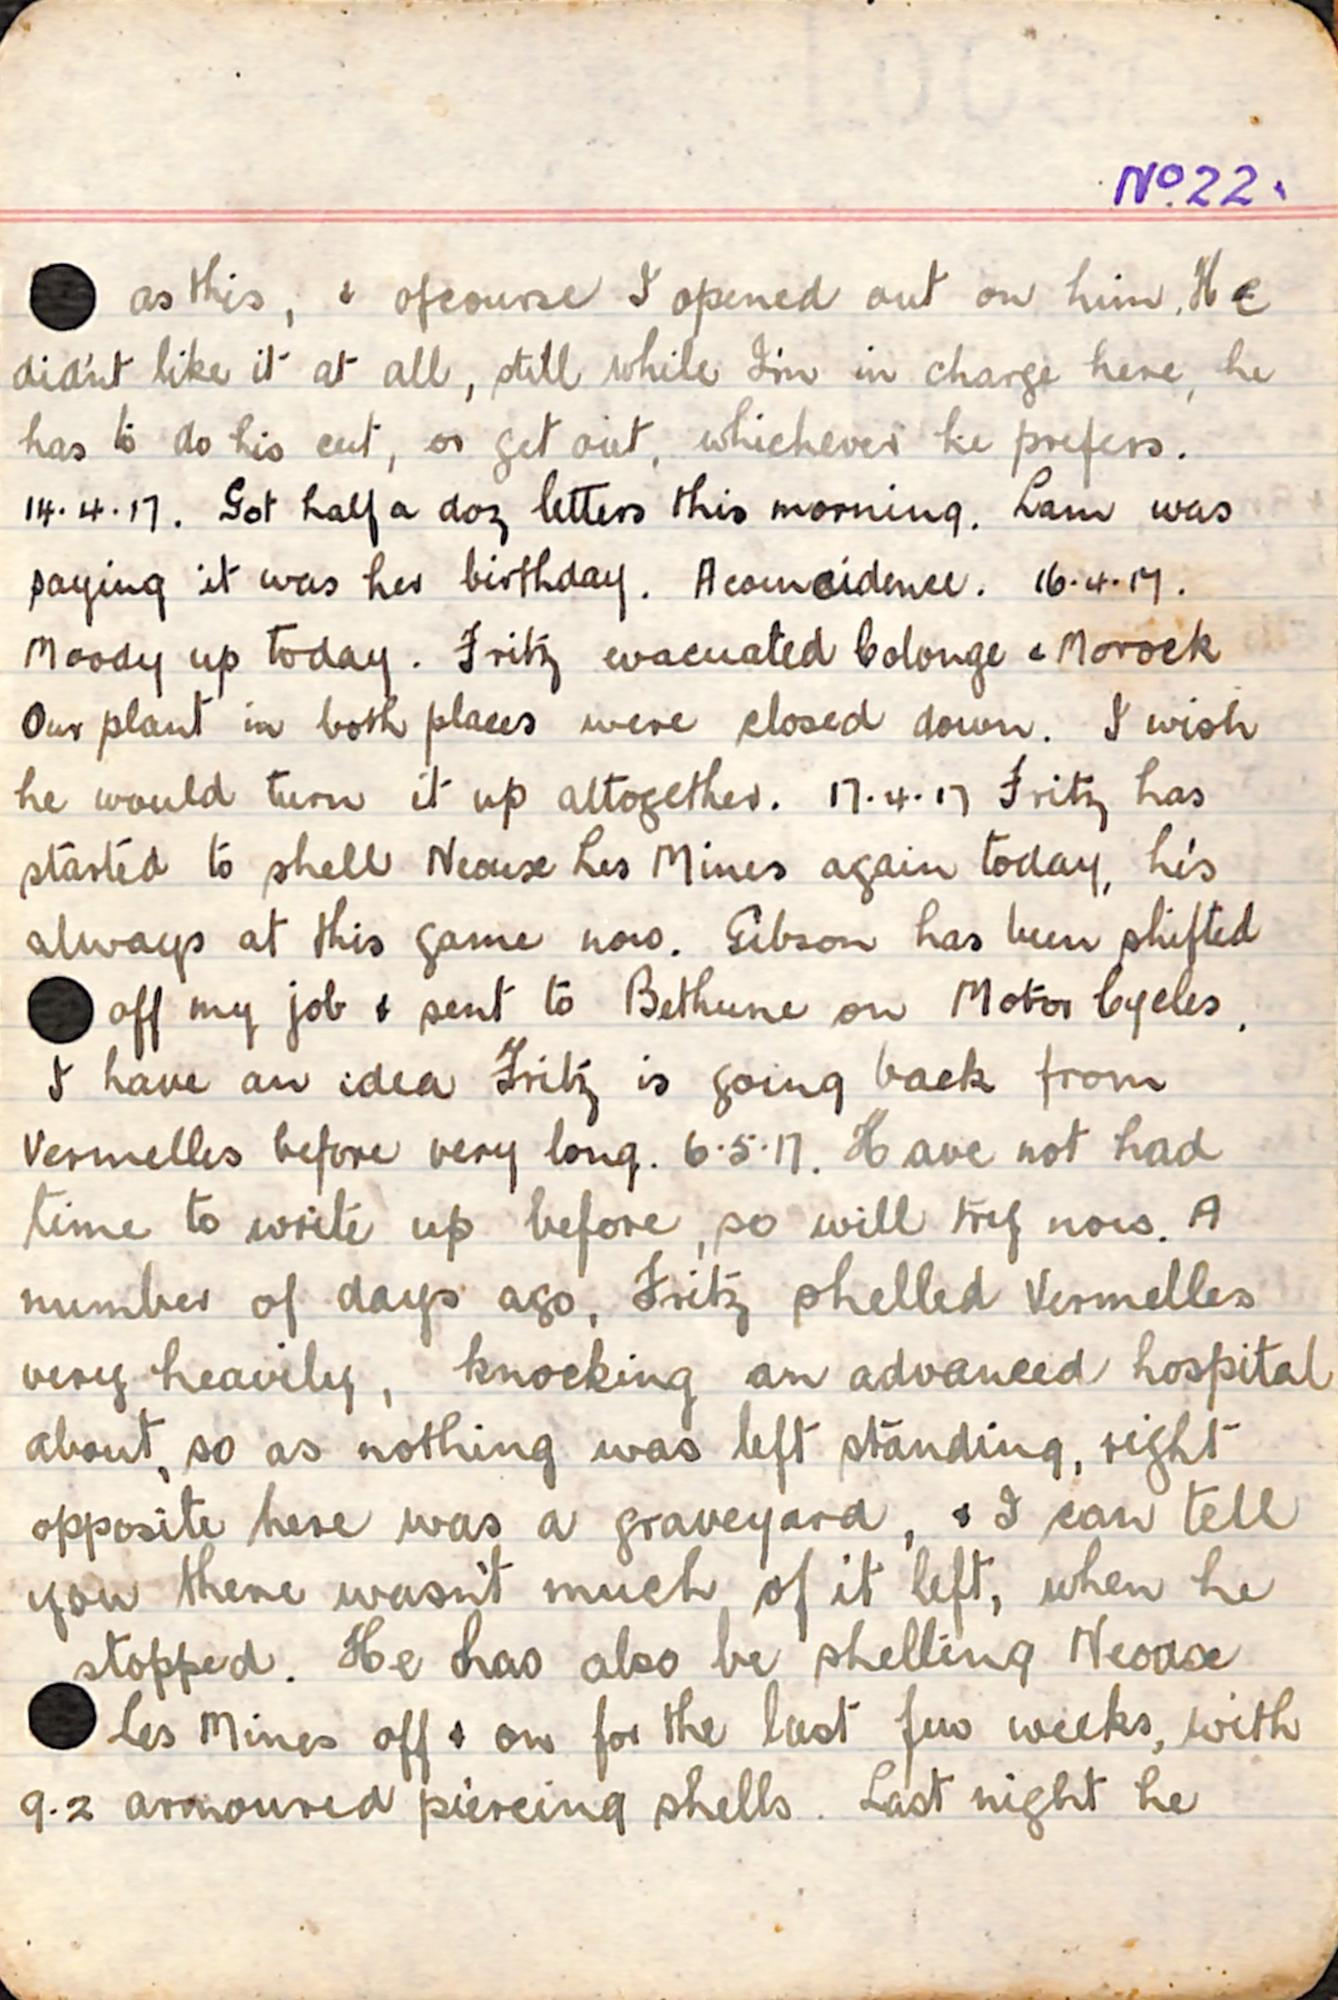 No. 22.
as this, & ofcourse I opened out on him. He
didn't like it at all, still while I'm in charge here, he
has to do his cut, or get out, whichever he prefers.
14.4.17. Got half a doz letters this morning. Lam was
saying it was her birthday. A coincidence. 16.4.17.
Moody up today. Fritz evacuated Colonge & Morock
Our plant in both places were closed down. I wish
he would turn it up altogether. 17.4.17 Fritz has
started to shell Neoux Les Mines again today, he's
always at this game now. Gibson has been shifted
off my job & sent to Bethune on Motor Cycles.
I have an idea Fritz is going back from
Vermelles before very long. 6.5.17. Have not had
time to write up before, so will try now. A
number of days ago, Fritz shelled Vermelles
very heavily, knocking an advanced hospital
about, so as nothing was left standing, right
opposite here was a graveyard, & I can tell
you there wasn't much of it left, when he
stopped. He has also be shelling Neoux
Les Mines off & on for the last few weeks, with
9.2 armoured piercing shells. Last night he